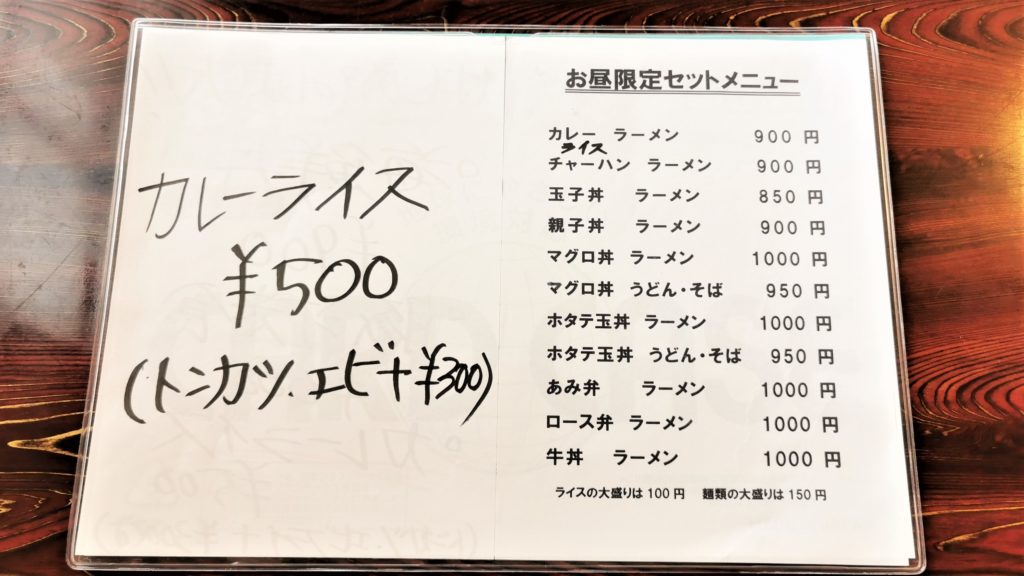 カレーライス
¥500
(トンカツ.エビ+¥300)
お昼限定セットメニュー
カレー ラーメン 900 円
ライス
チャーハン ラーメン 900 円
玉子丼 ラーメン 850 円
親子丼 ラーメン 900 円
マグロ丼 ラーメン 1000 円
マグロ丼 うどん・そば 950 円
ホタテ玉丼 ラーメン 1000 円
ホタテ玉丼 うどん・そば 950 円
あみ弁 ラーメン 1000 円
ロース弁 ラーメン 1000 円
牛丼 ラーメン 1000 円
ライスの大盛りは 100 円 麺類の大盛りは 150 円